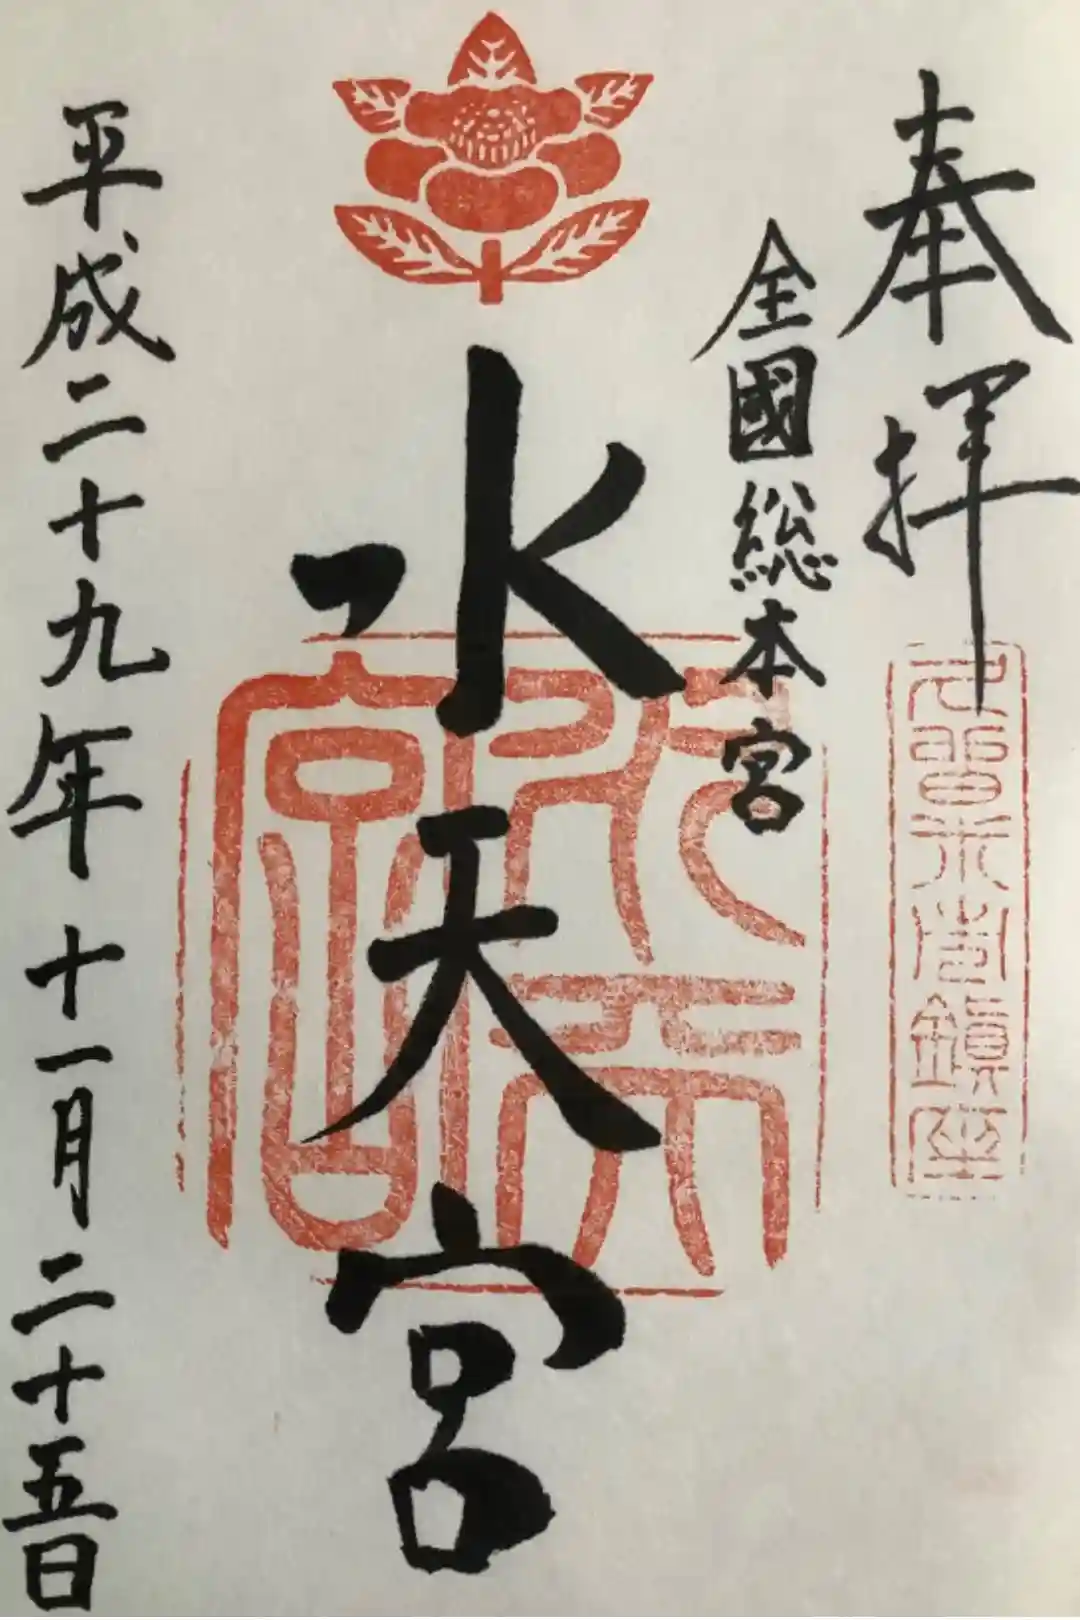 奉拝
全國総本宮
水天宮
水天宮
平成二十九年十一月二十五日